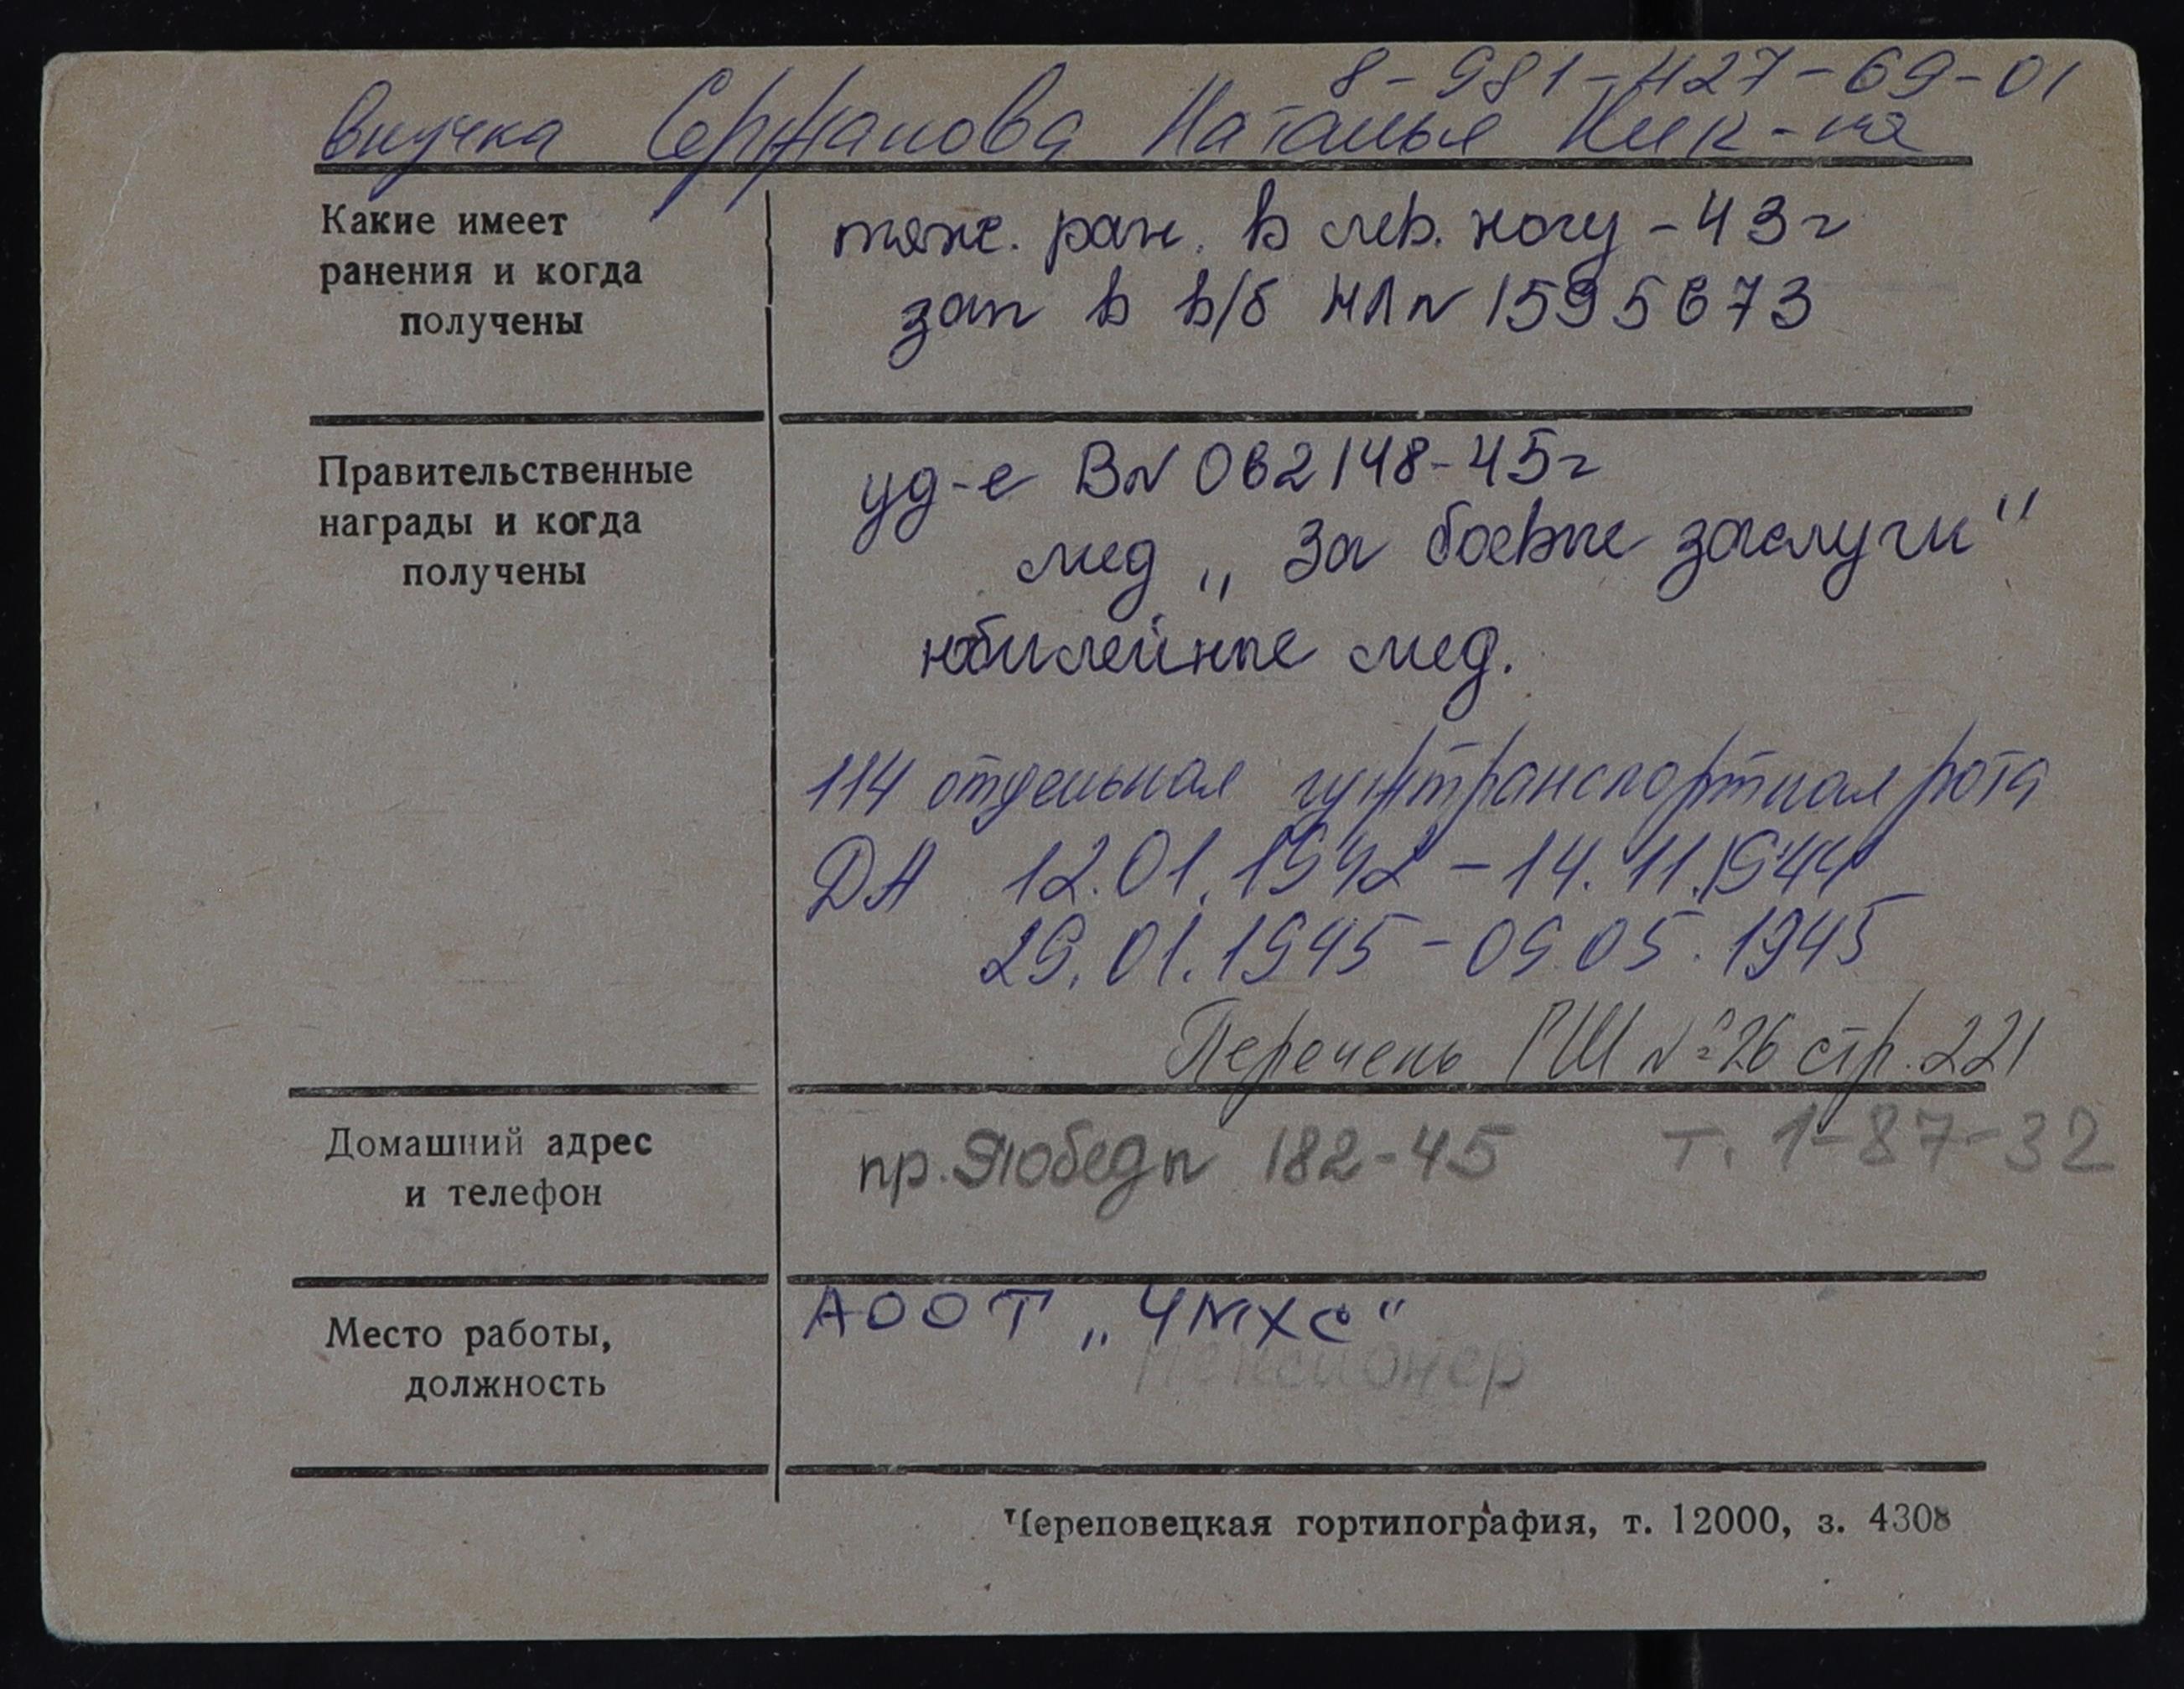 8-981-427-69-01
внучка Сержанова Наталья Ник-на
Какие имеет
ранения и когда
получены
тяж. ран. в лев. ногу - 43 г
зап в в/б НЛ № 1595673
Правительственные
награды и когда
получены
уд-е В№ 062148 - 45 г
мед „За боевые заслуги"
юбилейные мед.
114 отдельная гужтранспортная рота
ДА 12.01.1942 - 14.11.1944
29.01.1945 - 09.05.1945
Перечень ГШ № 26 стр. 221
Домашний адрес
и телефон
пр. Победы 182-45 т. 1-87-32
Место работы,
должность
АООТ „ЧМХС"
пенсионер
Череповецкая гортипография, т. 12000, з. 4308